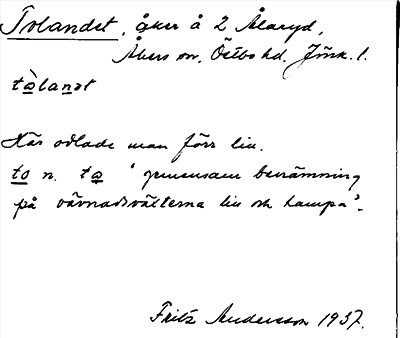 Tolandet, åker å 2 Ålaryd,
Åkers sn, Östbo hd, Jönk. l.
tàlandt
Här odlade man förr lin.
to n. ta 'gemensam benämning
på vävnadsväxterna lin och hampa'.
Fritz Andersson 1937.